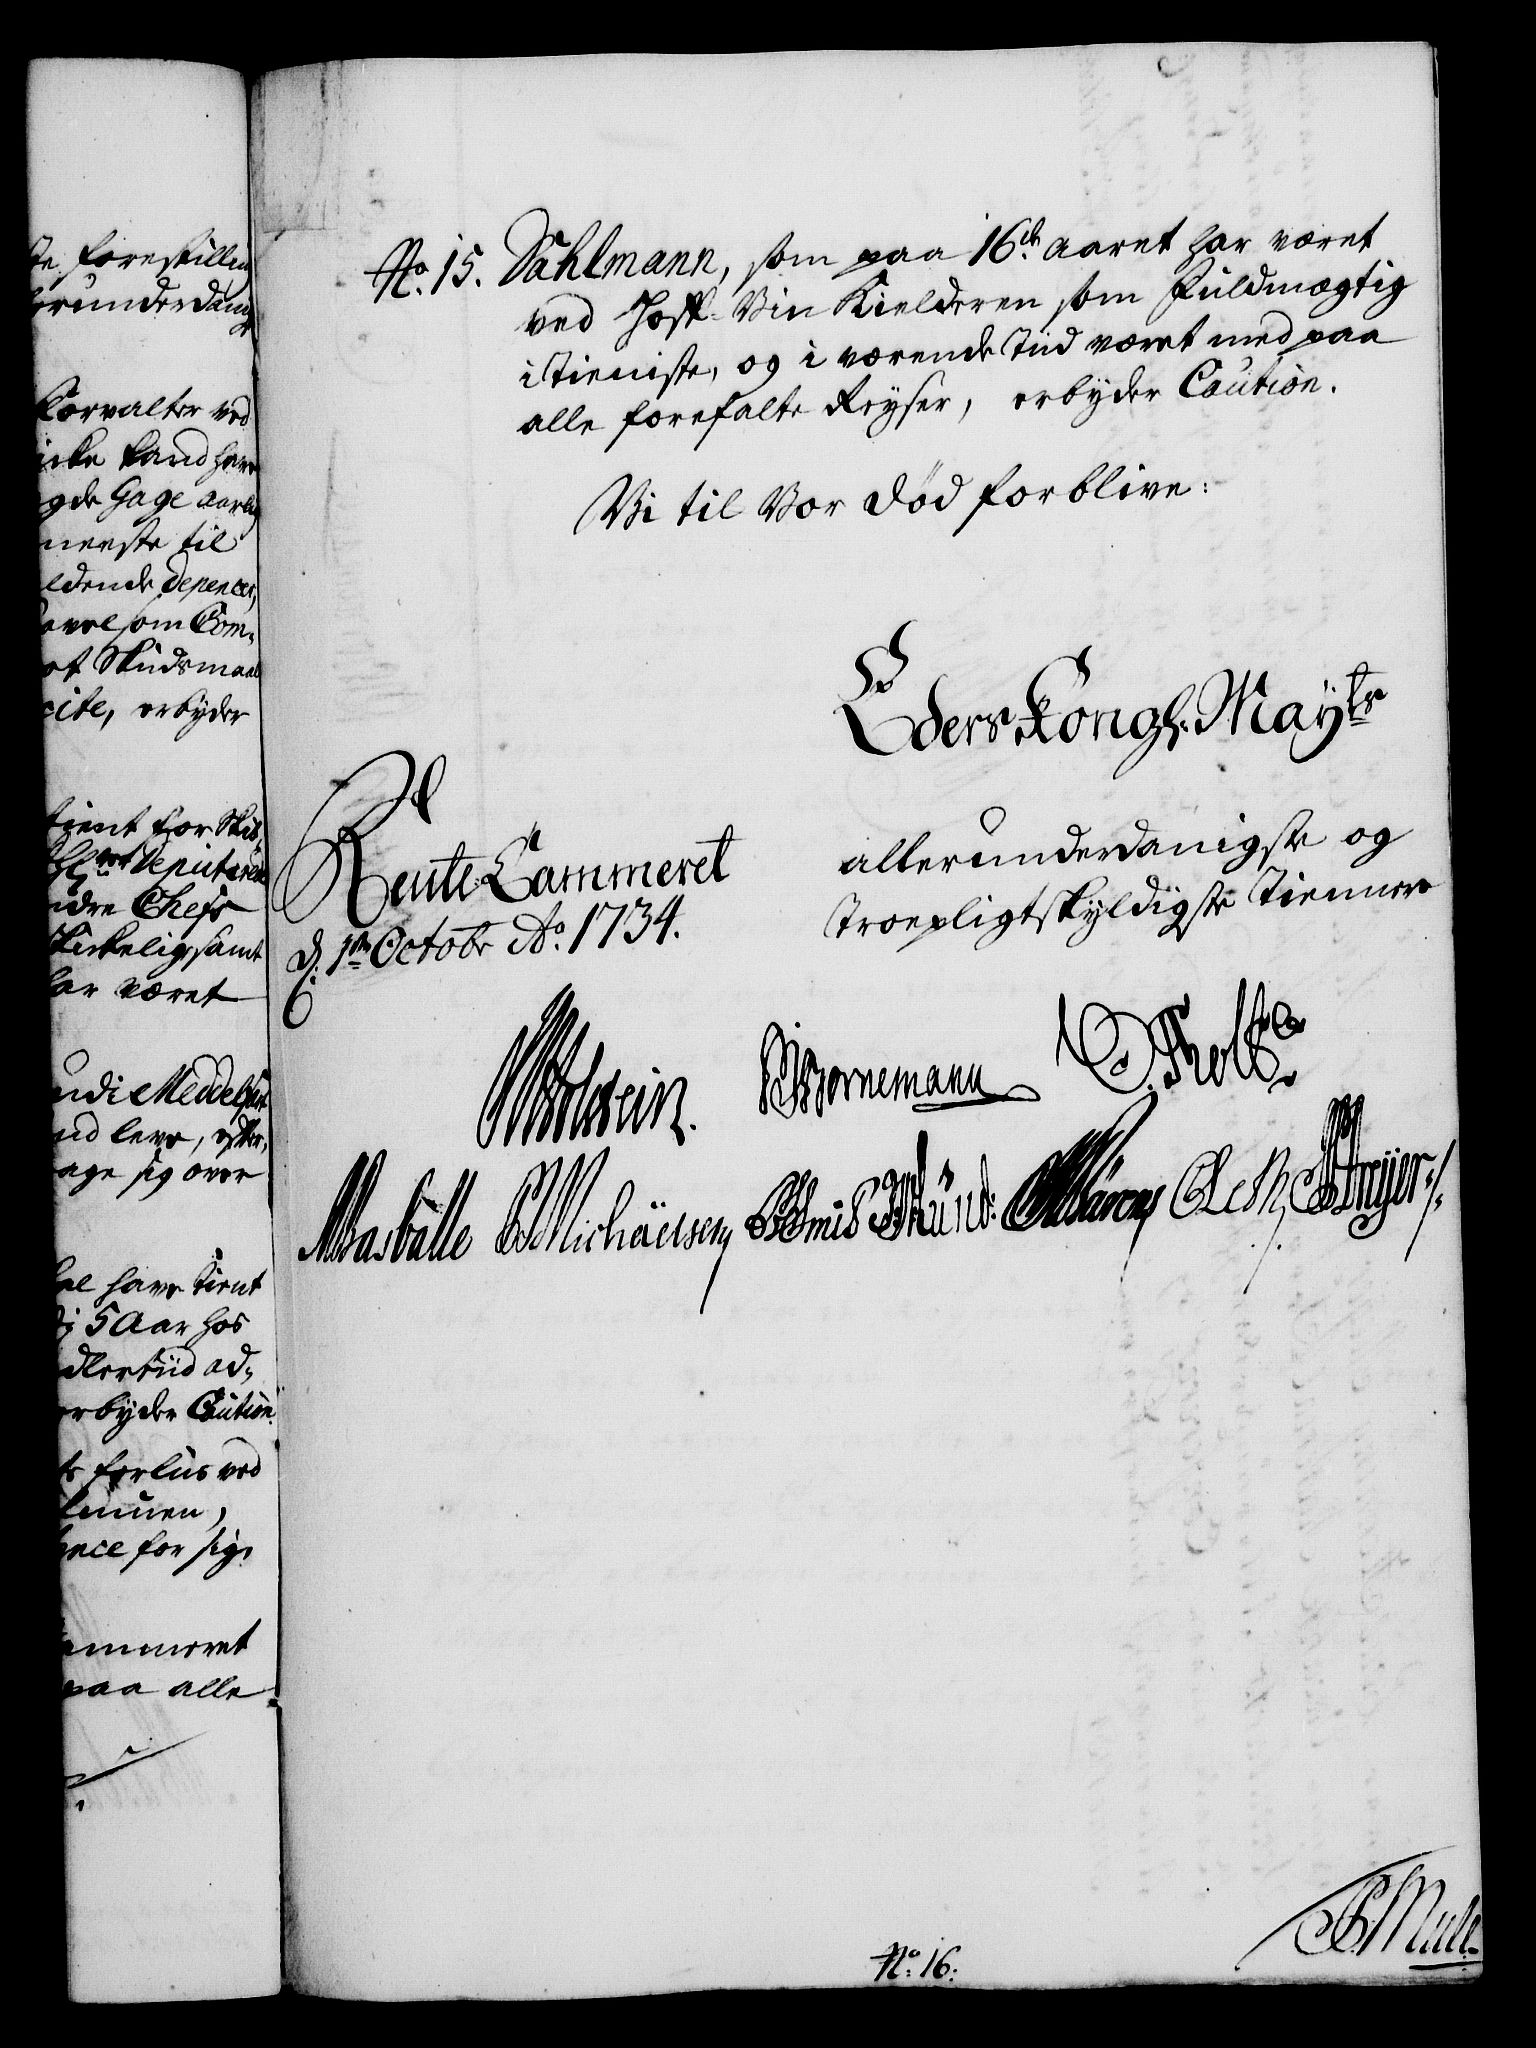 te forestillin
erunderdanig
Forvalter ved
icke kand have
gde Gage aarlig
meeste til
ldende depencer,
avel som Com-
et Skudsmaal
cite, erbyder
tient for Skib
Deputerede
idre Chefs
skickelig, samt
har været
undi Meddelhu
nd leve, efter,
age sig over
hal have tient
5 Aar hos
dlertiid ad,
erbyder Caution
forlis ved
lennen,
ence for sig,
ammeret
paa alle
No. 15. Dahlmann, som paa 16de aaret har været
ved Hoff- Viin Kielderen som Fuldmægtig
i tieniste, og i værende tiid været med paa
alle forefalte Reyser, erbyder Caution.
Vi til Vor død forblive:
Eders Kongl. Mayts
allerunderdanigste og
Troepligtskyldigste Tiennere
Rente Cammeret
d. 1te Octobr Ao. 1734.
Holstein. Bornemann
Basballe Michäelsen Münd: Dreyer ./.
Mule
No. 16: